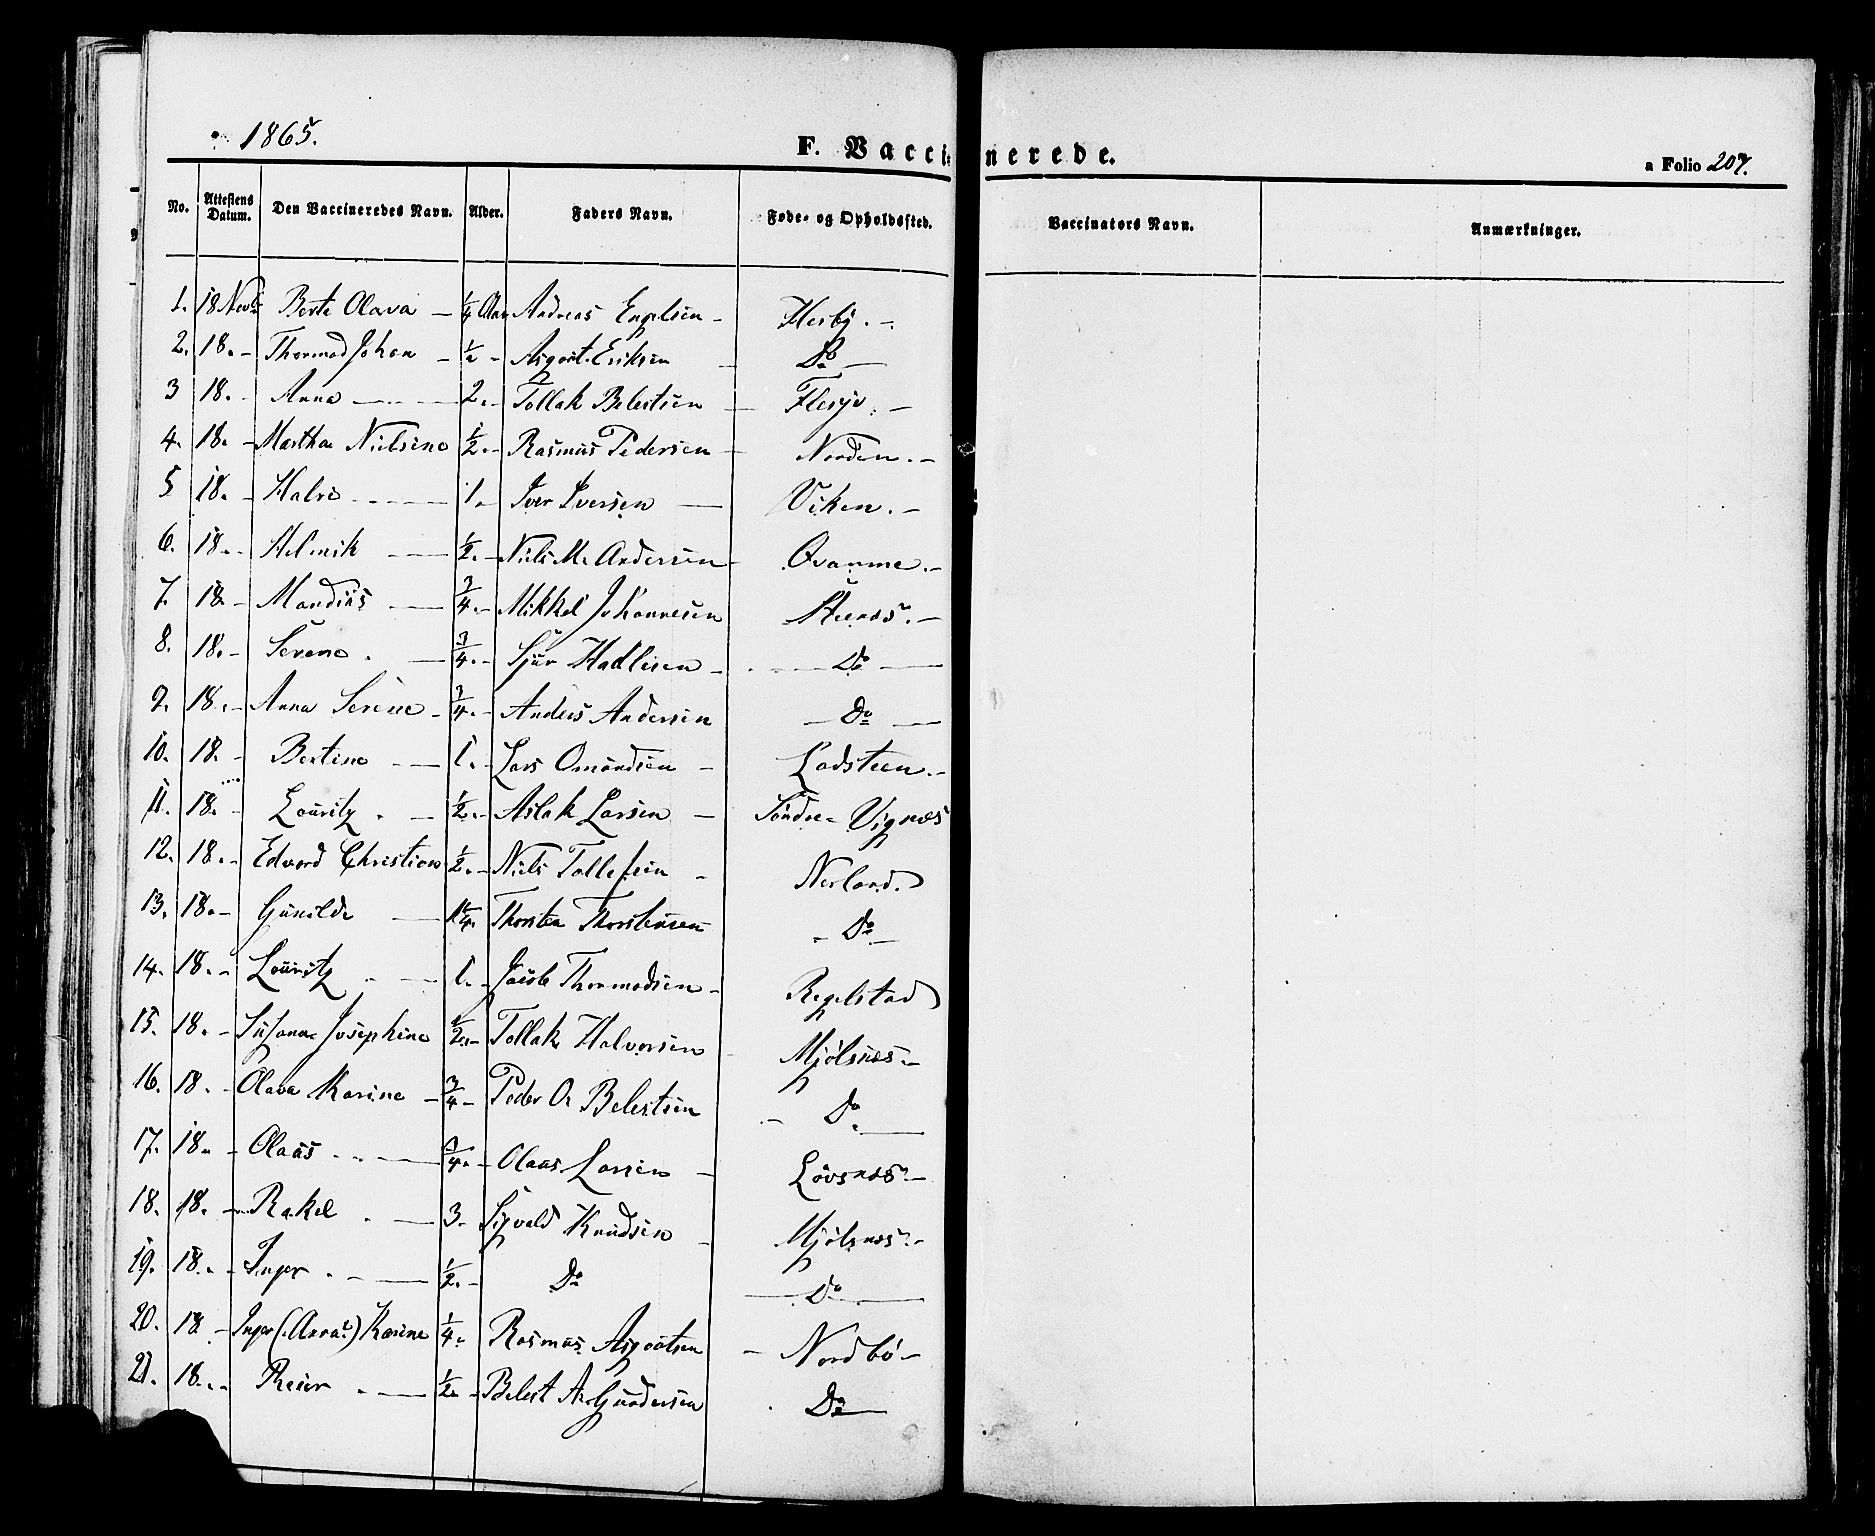 1865.
F. Vaccinerede.
a Folio 207.
No. Attestens Datum. Den Vaccineredes Navn. Alder. Faders Navn. Føde- og Opholdssted. Vaccinators Navn. Anmærkninger.
1. 18 Novbr Berte Olava — 1/4 Aar Andreas Engelsen - Hesby. -
2. 18. - Thormod Johan - 1/2 - Asgout Eriksen - Do -
3 18. - Anna — 2. - Tollak Belestsen — Flesjø. -
4. 18. - Martha Nielsine 1/2. - Rasmus Pedersen — Norden. -
5 18. - Halvo — 1. Iver Iversen — Viken. -
6. 18. - Helmik — 1/2. - Niels M. Andersen - Qvamme. -
7. 18. - Mandius — 3/4. - Mikkel Johannesen Steenæs. -
8. 18. - Serene. — 3/4. - Sjur Hadlesen - Do —
9. 18. - Anna Serene - 3/4. - Anders Andersen — Do —
10. 18. - Bertine — 1. - Lars Omundsen - Ladsteen. -
11. 18. - Louritz. — 1/2. - Aslak Larsen — Søndre- Vignæs
12. 18. - Edvard Christian 1/2. - Niels Tollefsen - Nerland.
13. 18. - Gunilde — 1 1/4. Thorsten Thorstensen - Do -
14. 18. - Louritz. — 1. - Jacob Thormodsen - Regelstad
15. 18. - Susanna Josephine 1/2. - Tollak Halvorsen - Mjølsnæs. -
16. 18. - Olava Karine - 3/4 - Peder O. Belestsen - Do. —
17. 18. - Olaus — 3/4. - Olaus Larsen — Løvsnæs. -
18. 18. - Rakel. — 3. Sigvald Knudsen - Mjølsnæs. -
19. 18. - Inger. — 1/2. - Do — Do —
20. 18 - Inger (Anna?) Karine 1/4. Rasmus Asgoutsen - Nordbø -
21. 18. - Reier. — 1/2. - Belest A. Gundersen . Do —